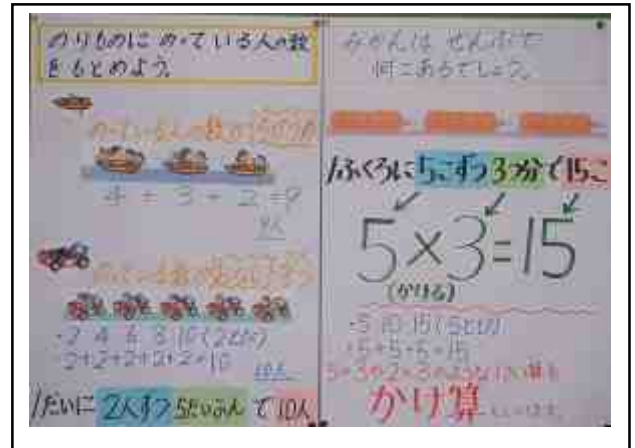 のりものに のっている人の数
をもとめよう。
のっている人の数が
4 + 3 + 2 = 9
9人
2 4 6 8 10(2とび)
2+2+2+2+2=10
10人
1だいに 2人ずつ 5だいぶん で 10人
みかんは ぜんぶで
何こあるでしょう。
1ふくろに 5こずつ 3つ分で 15こ
5×3=15
(かける)
5 10 15(5とび)
5+5+5=15
かけ算